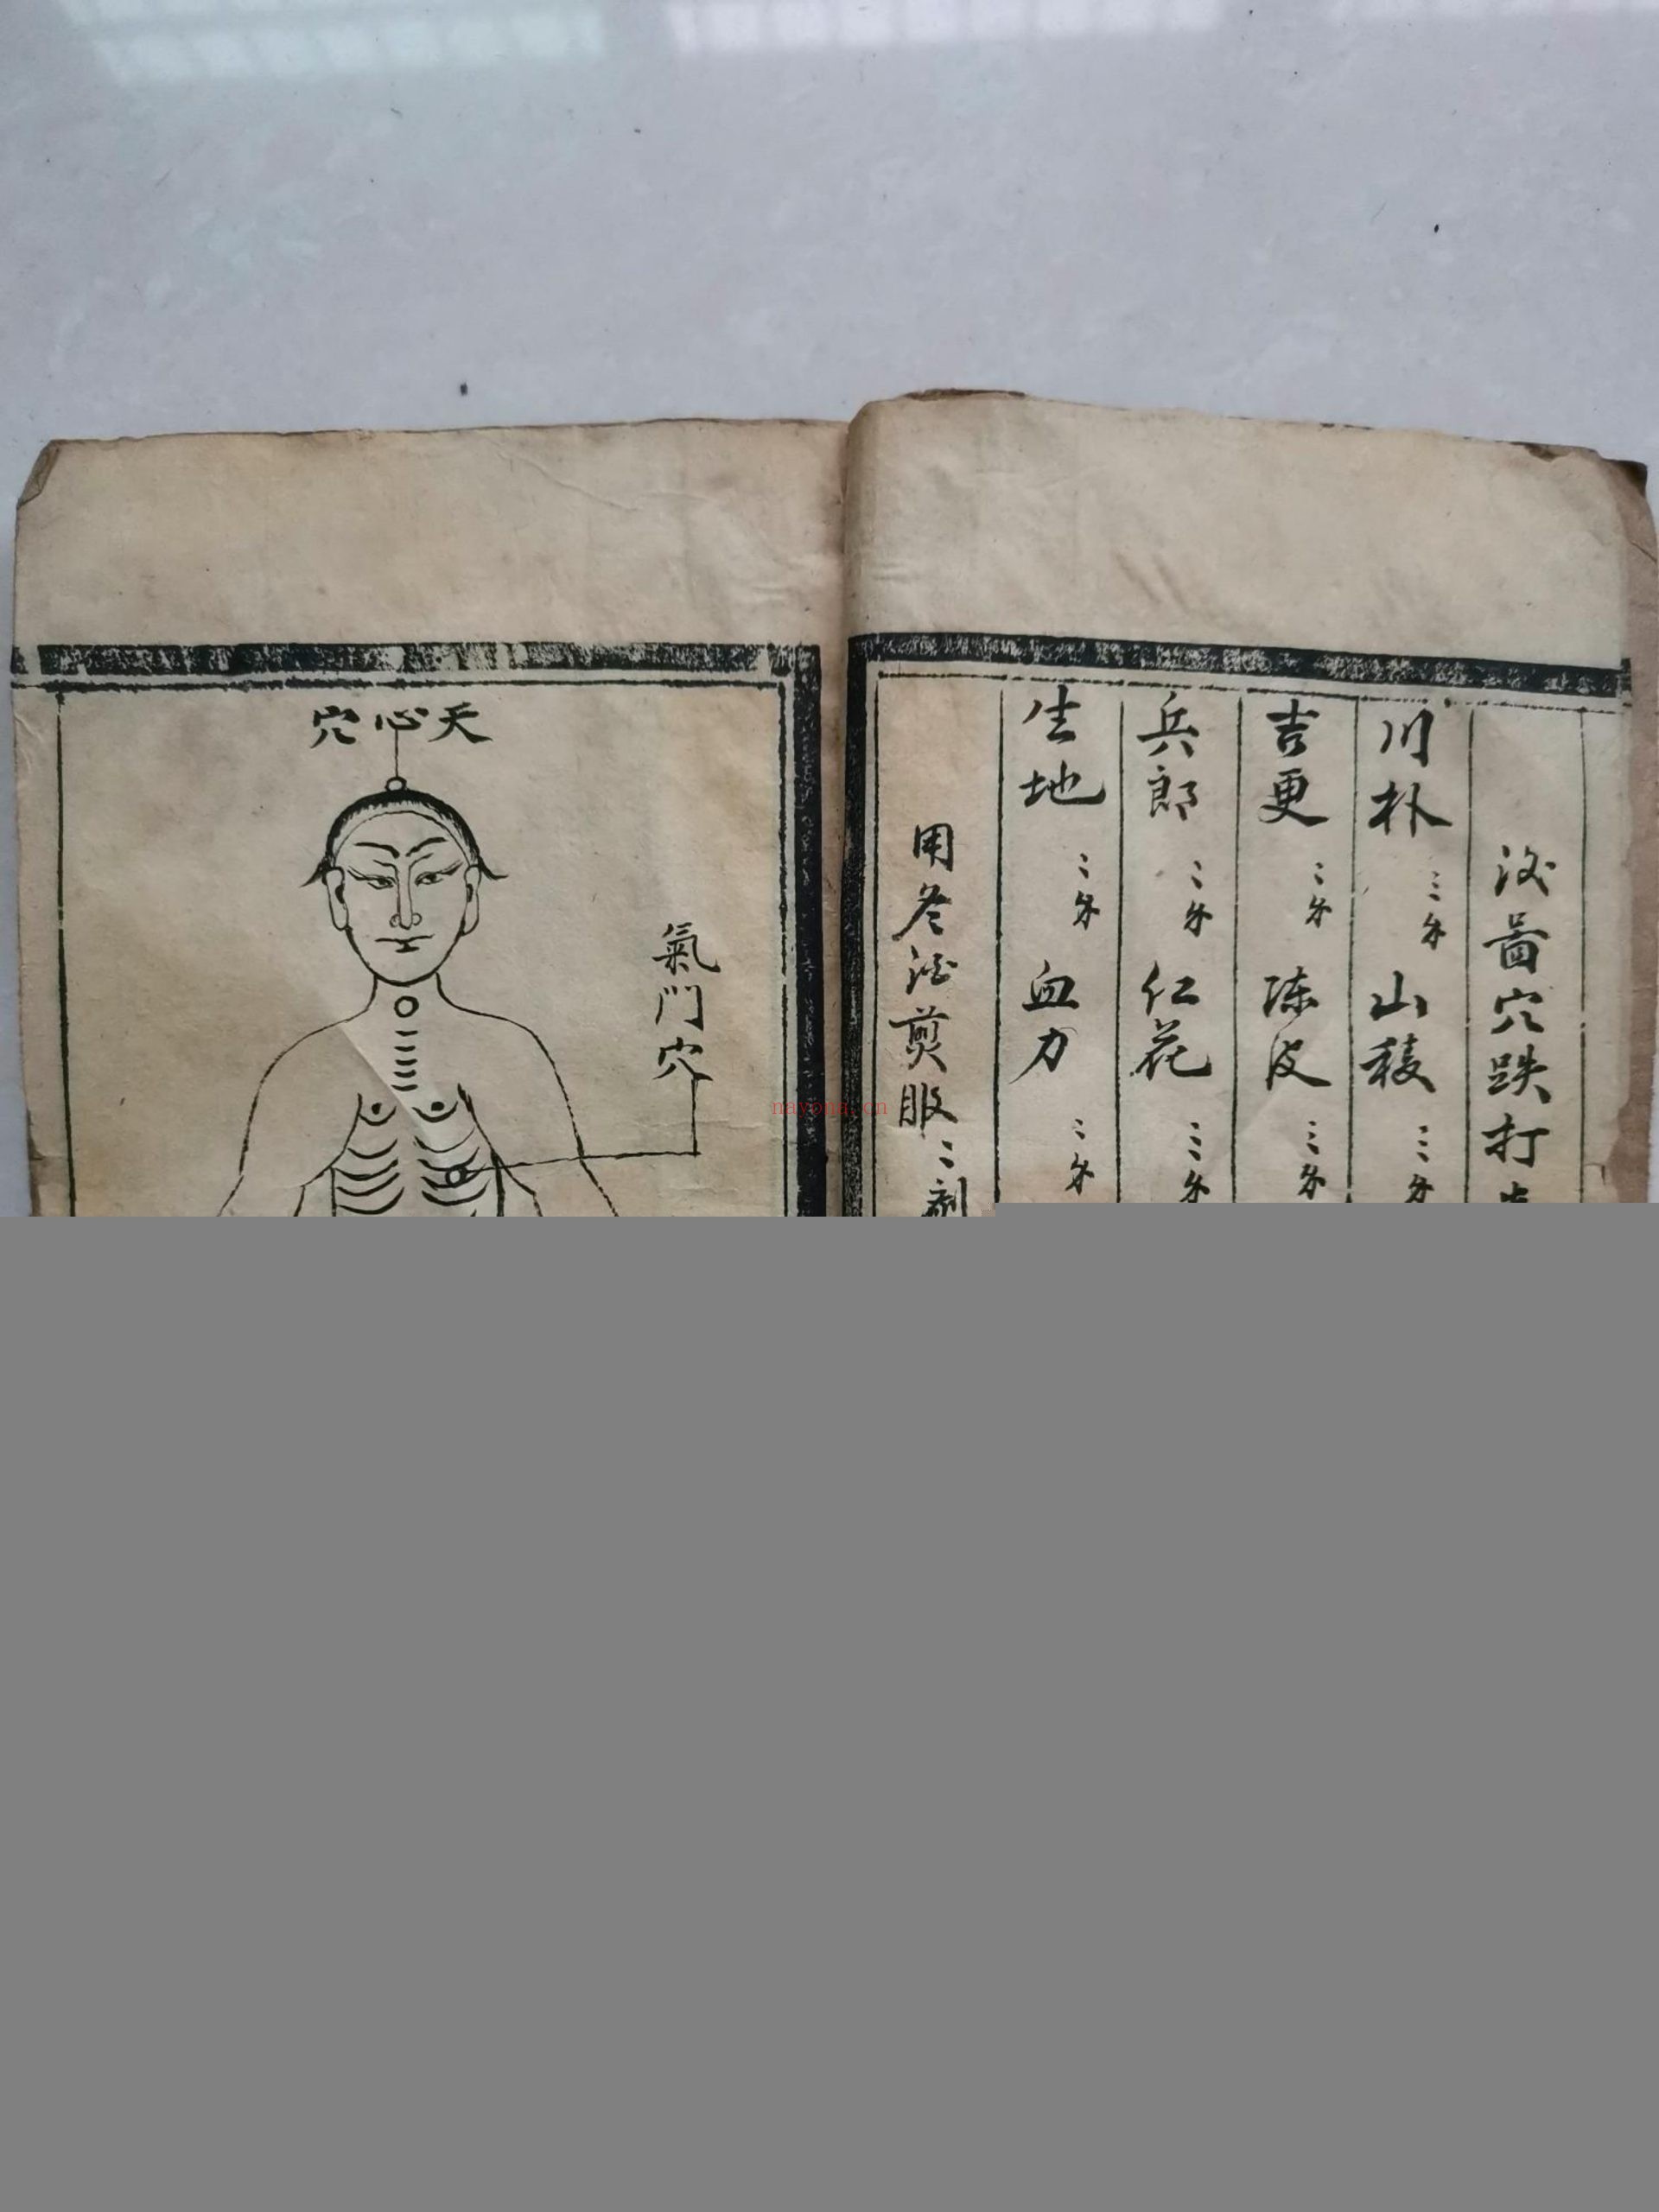 圖穴跌打
川朴 三分 山稜 三分
吉更 三分 陈皮 三分
兵郎 三分 仁花 三分
生地 三分 血力 三分
用冬酒煎服三剂
天心穴
氣門穴
nayona.cn